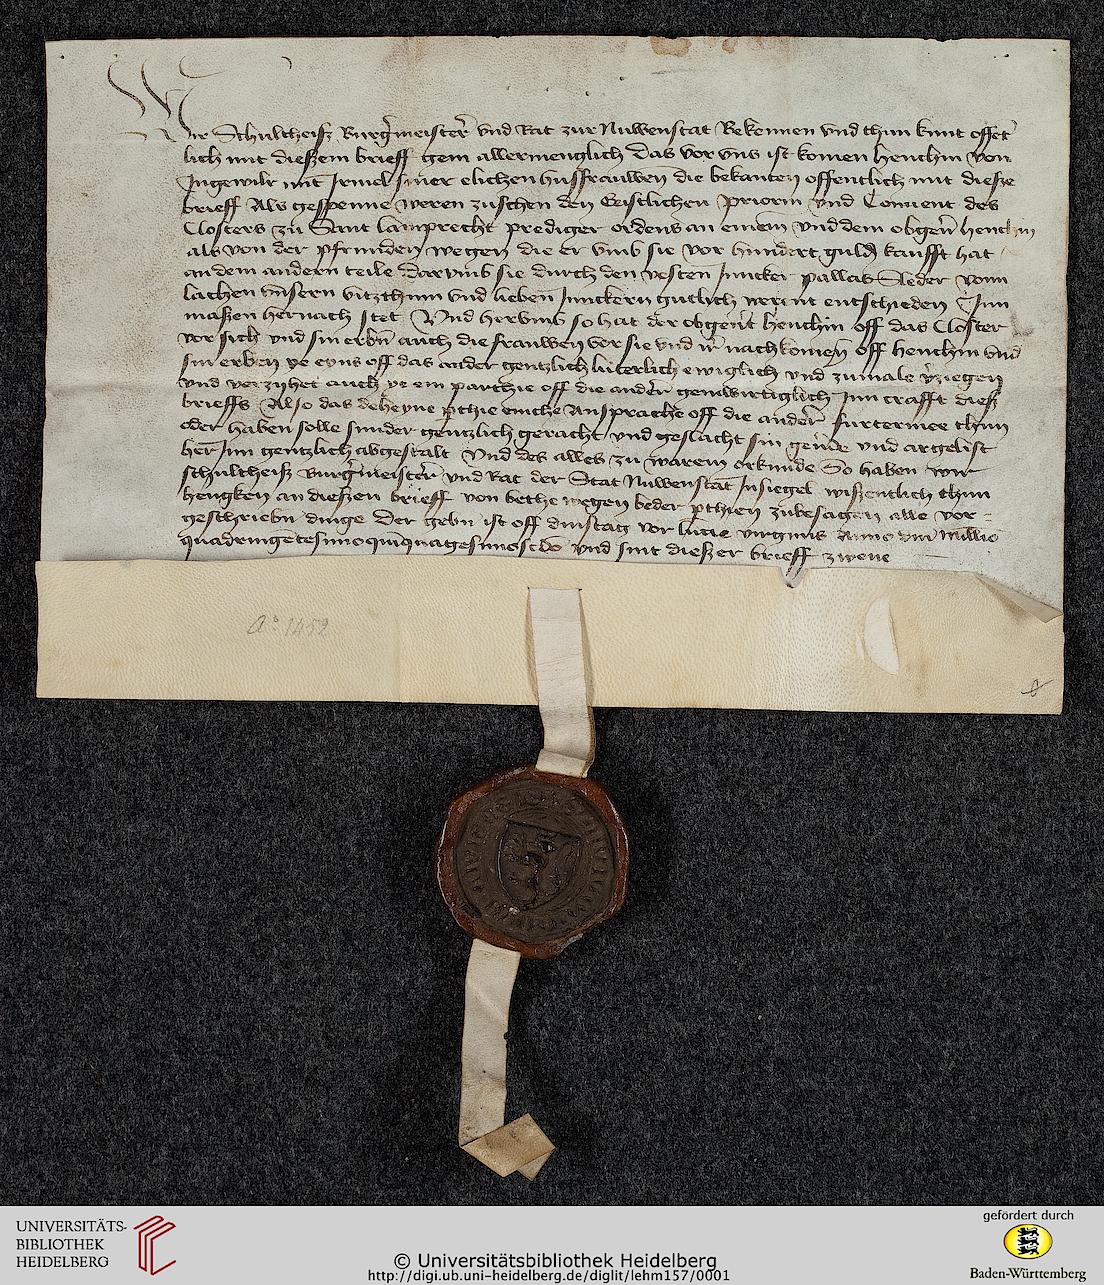 Wir Schultheisz Burgermeister vnd Rat zur Nuwenstat Bekennen vnd thun kunt offet
lich mit dieszem brieff gein allermenglich das vor vns ist komen henchin von
Ingewilr mit Irmel siner elichen husfrauwen die bekanten offentlich mit diesze
brieff Als gespenne weren zuschen den Geistlichen priorin vnd Conuent des
Closters zu Sant lamprecht prediger ordens an einem vnd dem obgen henchin
als von der pfrunden wegen die er vmb sie vor hundert guld kaufft hat
an dem andern teile Darvmb sie durch den vesten Juncker pallas Sleder vom
lachen vnsern vitzthum vnd lieben Junckern gutlich werent entschieden Inn
maszen hernach stet Vnd hervmb so hat der obgent henchin off das Closter
vor sich vnd sin erbn auch die frauwen vor sie vnd ir nachkomen off henchin vnd
sin erben ye eyns off das ander gentzlich luterlich ewiglich vnd zumale verziegen
vnd verzyhet auch ye ein parthie off die ander genwirtiglich Inn crafft diesz
brieffs Also das deheyne pthie eniche Ansprache off die ander furterme thun
oder haben solle sunder gentzlich geracht vnd geslacht sin geuerde vnd argelist
her Inn gentzlich abgestalt Vnd des alles zu warem orkunde So haben wir
schultheisz Burgermeister vnd Rat der Stat Nuwenstat Insiegel wiszentlich thun
hengken an dieszen brieff von bethe wegen beder pthien zubesagen alle vor-
geschriebn dinge Der gebn ist off dinstag vor lucie virginis Anno dni Millio
quadringetesimoquiquagesimoscdo vnd sint dieszer brieff zwene
Ao 1452
UNIVERSITÄTS-
BIBLIOTHEK
HEIDELBERG
© Universitätsbibliothek Heidelberg
http://digi.ub.uni-heidelberg.de/diglit/lehm157/0001
gefördert durch
Baden-Württemberg